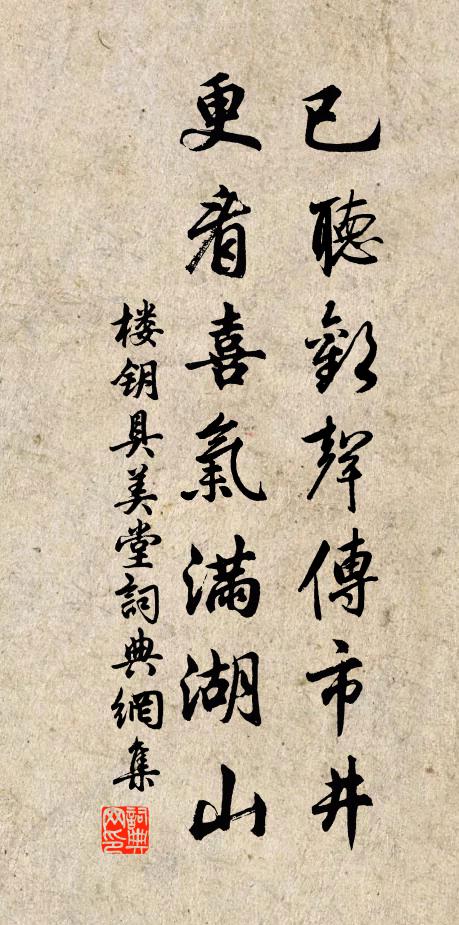 已聽歡聲傳市井
更看喜氣滿湖山
楼钥具美堂詞典網集
詞典网印